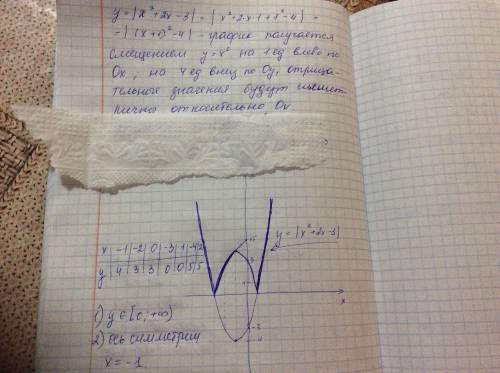 y = |x² + 2x - 3| = |x² + 2·x·1 + 1² - 4| =
= |(x+1)² - 4| - график получается
смещением y = x² на 1 ед влево по
Ox, на 4 ед вниз по Oy, отрица-
тельные значения будут
относительно Ox
y = |x² + 2x - 3|
x | -1 | -2 | 0 | -3 | 1 | -4 | 2
y | 4 | 3 | 3 | 0 | 0 | 5 | 5
x
1) y ∈ [0; +∞)
-3
2) ось симметрии
-4
x = -1